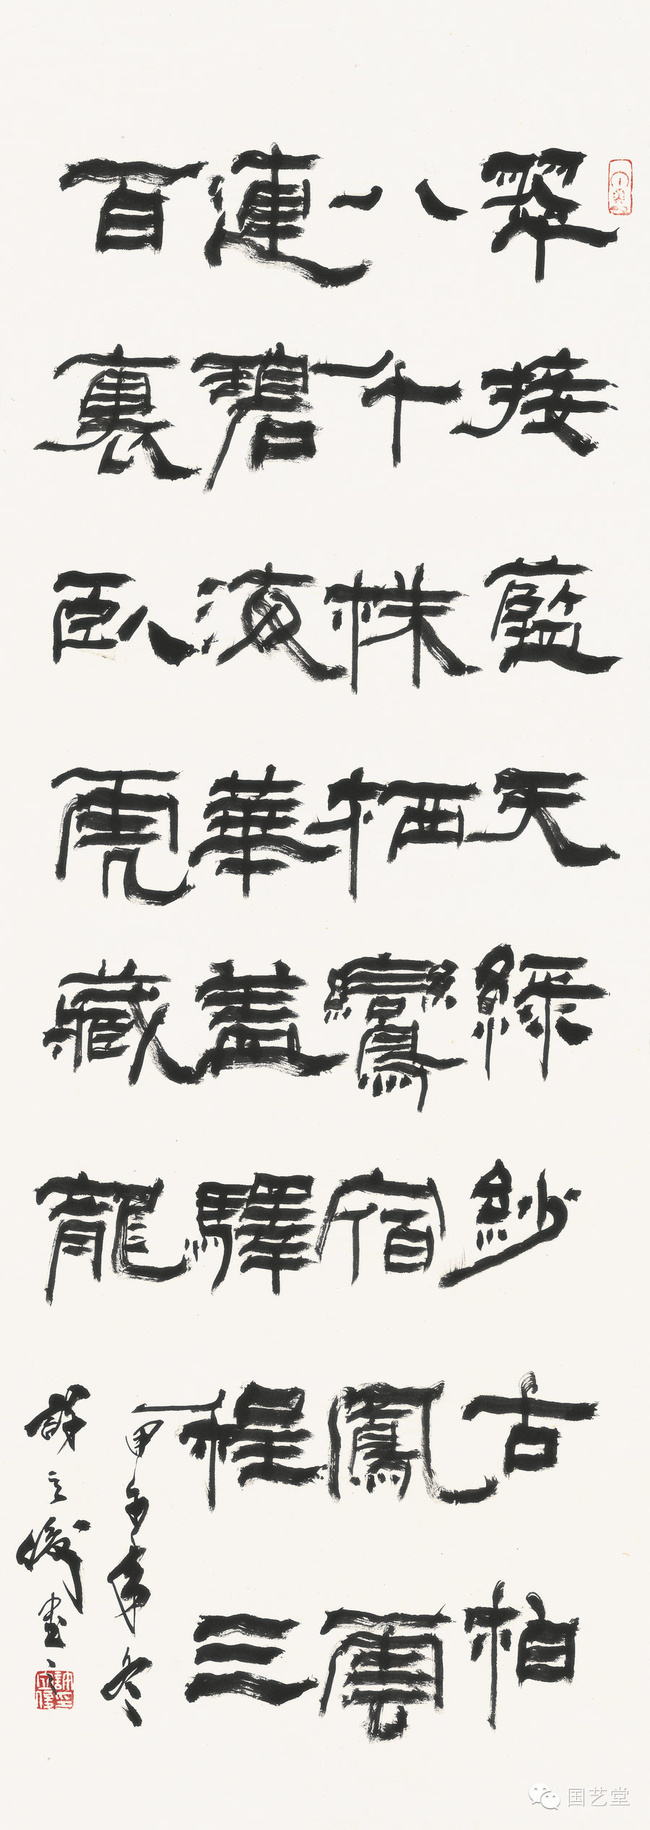 翠接藍天綠紗古柏
八千株栖鸞宿鳳雲
連碧海華盖驛程三
百裏臥虎藏龍
甲午年冬
国艺堂